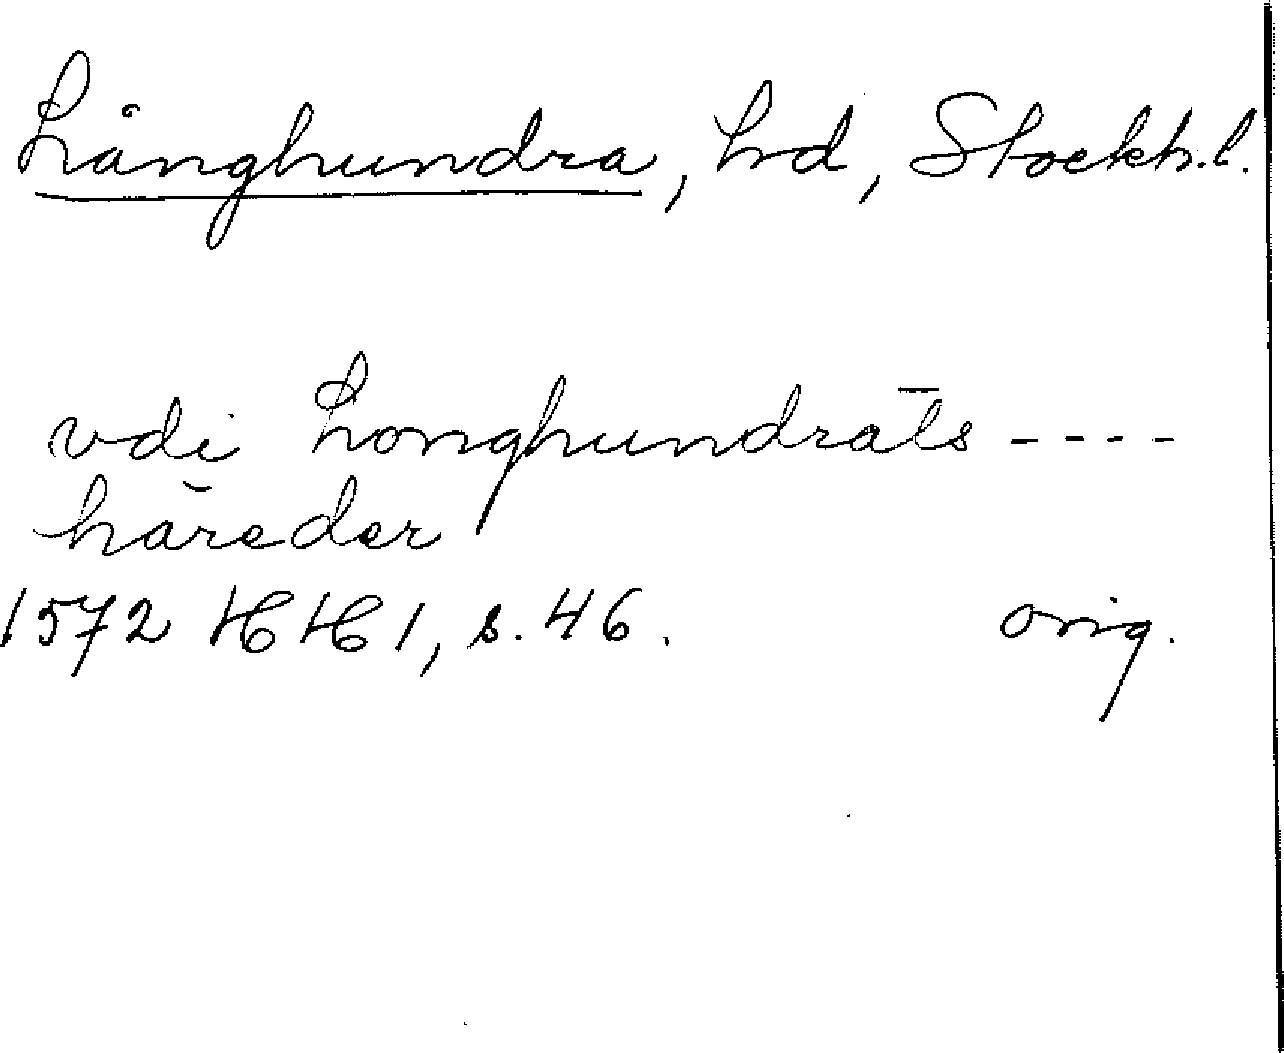 Långhundra, hd, Stockh.l.
vdi Longhundrat̄s ----
hăreder
1572 HH 1, s. 46. orig.